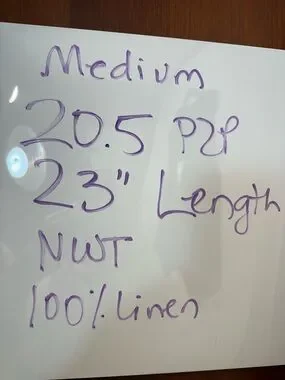 Medium
20.5 P2P
23" Length
NWT
100% Linen